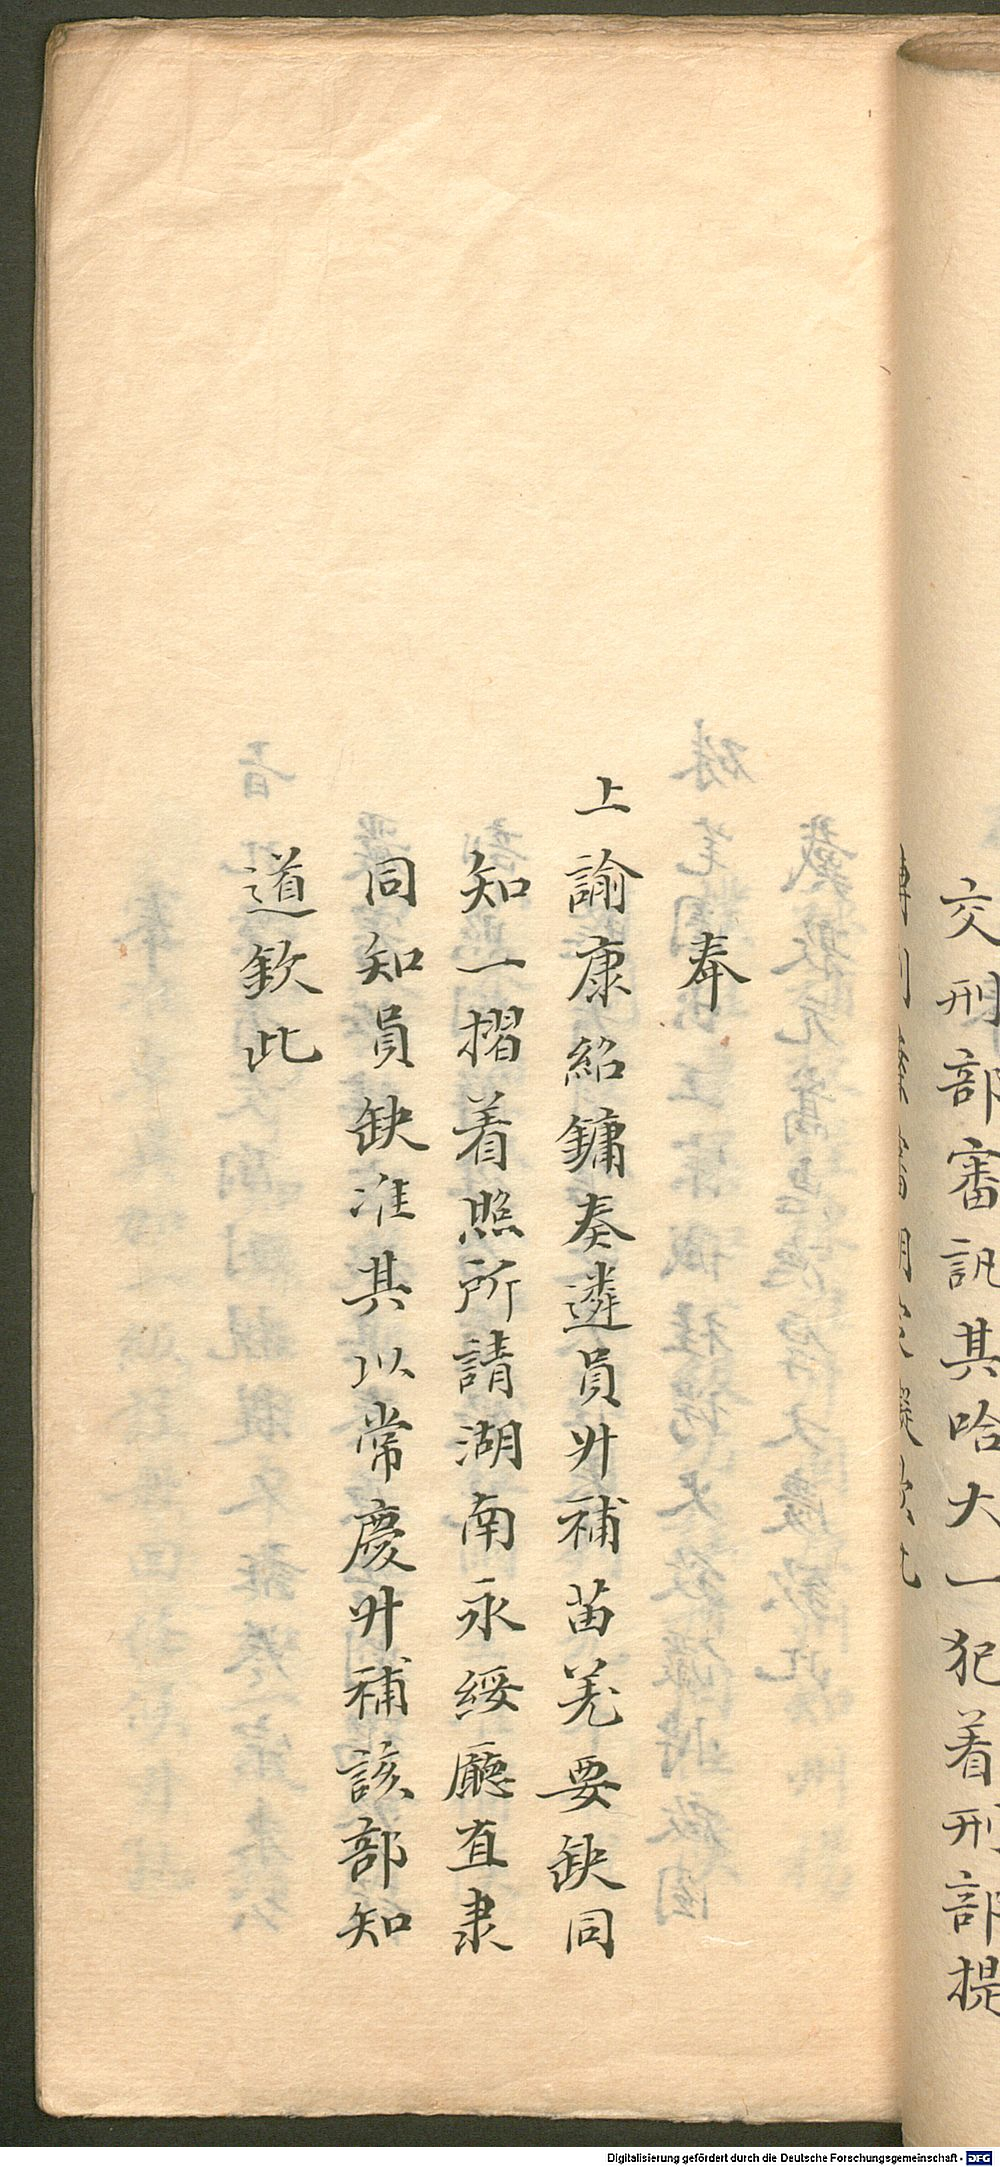 交刑部審訊其哈大一犯着刑部提
奉
上諭康紹鏞奏遴員升補苗羌要缺同
知一摺着照所請湖南永綏廳直隶
同知員缺准其以常慶升補該部知
道欽此
Digitalisierung gefördert durch die Deutsche Forschungsgemeinschaft - DFG